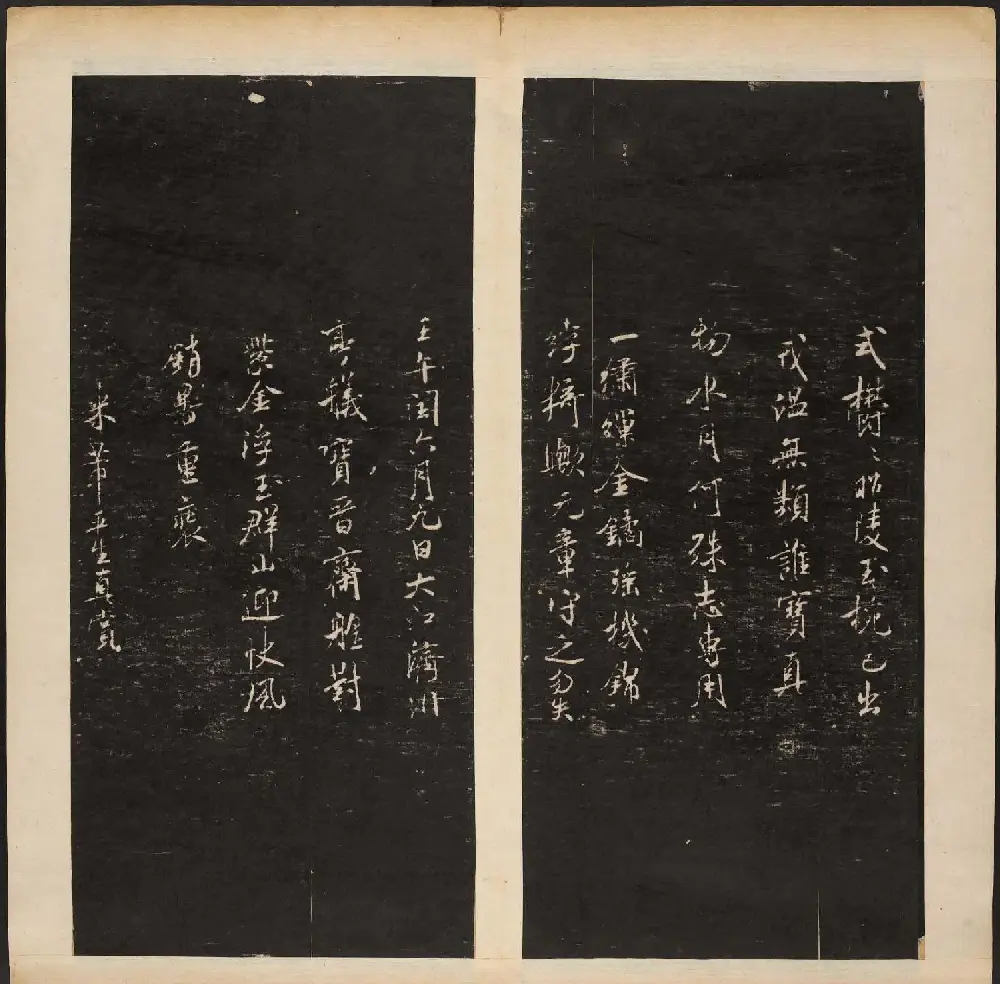 式欝〻昭陵玉椀已出
戎温無類誰寶真
物水月何殊志專用
一繡繅金鐍瑤機錦
綍猗歟元章守之勿失
壬午閏六月九日大江濟川
亭艤寶晋齋艎對
紫金浮玉群山迎快風
銷暑重裝
米芾平生真賞